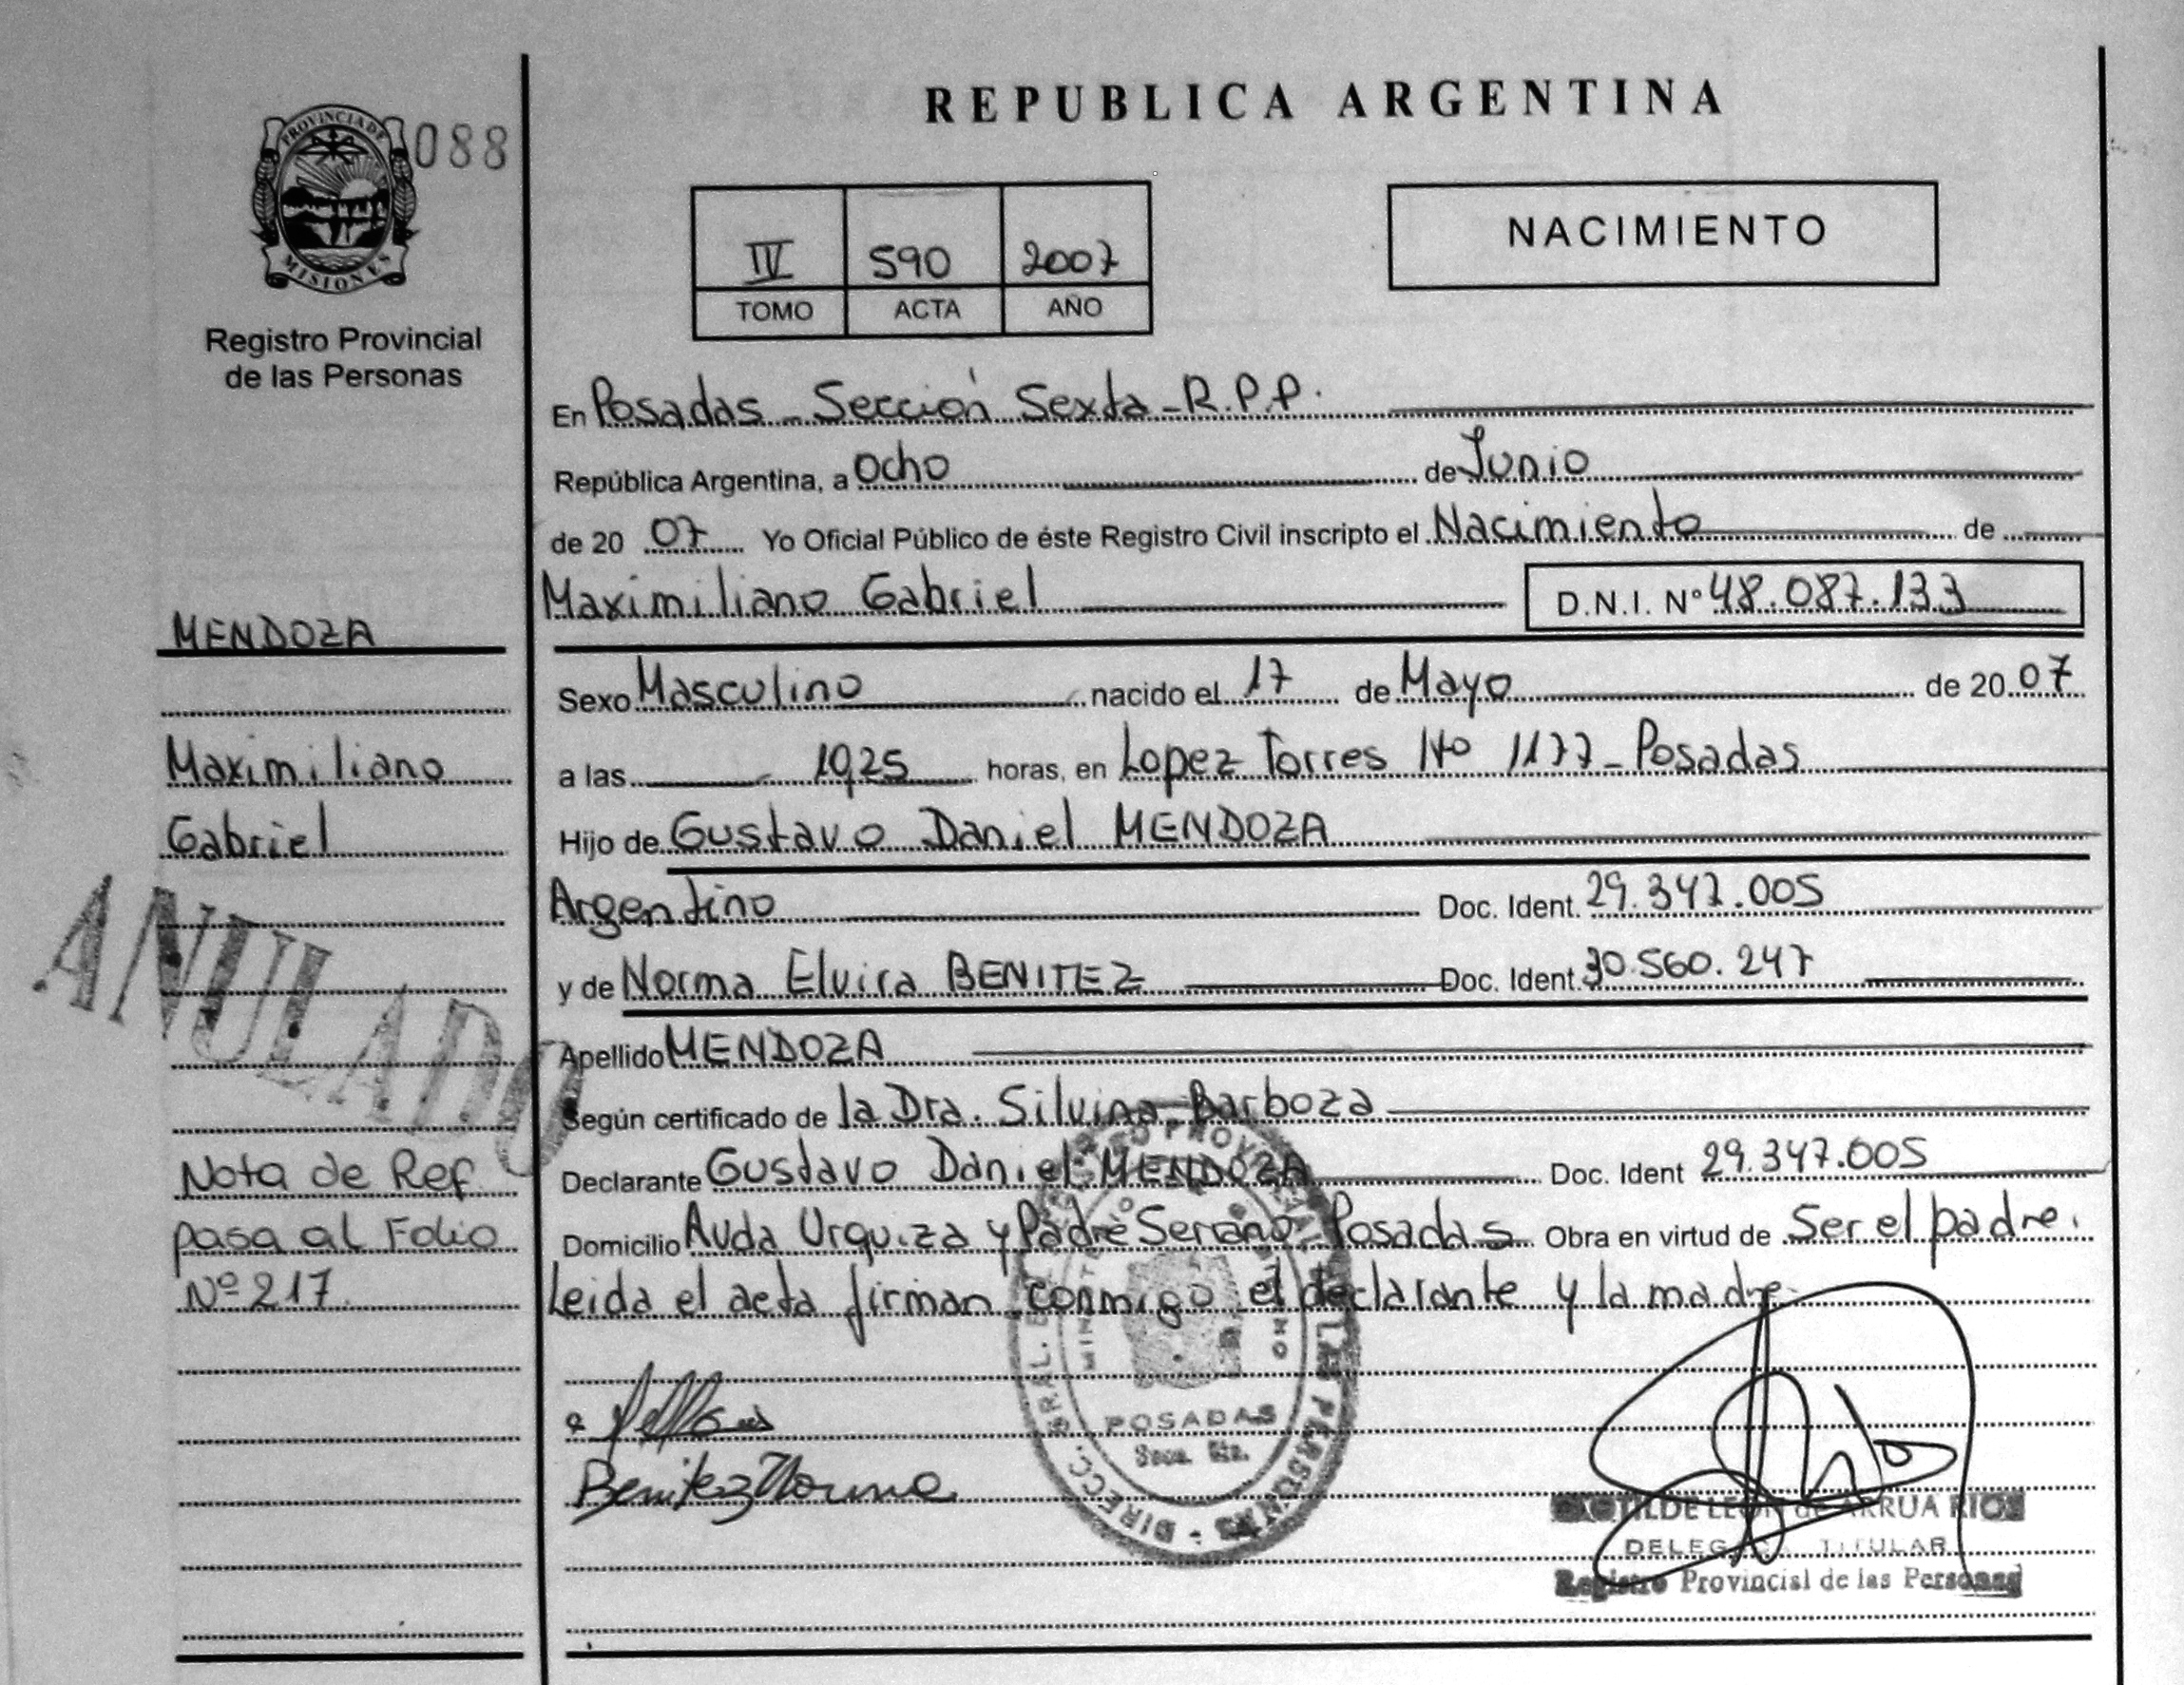 PROVINCIA DE
MISIONES
088
Registro Provincial
de las Personas
MENDOZA
Maximiliano
Gabriel
ANULADO
Nota de Ref.
pasa al Folio
Nº 217.
REPUBLICA ARGENTINA
IV 590 2007
TOMO ACTA AÑO
NACIMIENTO
En Posadas - Sección Sexta - R.P.P.
República Argentina, a Ocho de Junio
de 20 07 Yo Oficial Público de éste Registro Civil inscripto el Nacimiento de
Maximiliano Gabriel D.N.I. Nº 48.087.133
Sexo Masculino nacido el 17 de Mayo de 20 07
a las 1925 horas, en Lopez Torres Nº 1177 - Posadas
Hijo de Gustavo Daniel MENDOZA
Argentino Doc. Ident. 29.347.005
y de Norma Elvira BENITEZ Doc. Ident. 30.560.247
Apellido MENDOZA
Según certificado de la Dra. Silvina Barboza
Declarante Gustavo Daniel MENDOZA Doc. Ident 29.347.005
Domicilio Avda Urquiza y Padre Serrano Posadas Obra en virtud de Ser el padre.
Leida el acta firman conmigo el declarante y la madre
Benitez Norma
POSADAS
DE LAS PERSONAS - DIRECC. GRAL.
LEON de ARRUA RIOS
TITULAR
Registro Provincial de las Personas